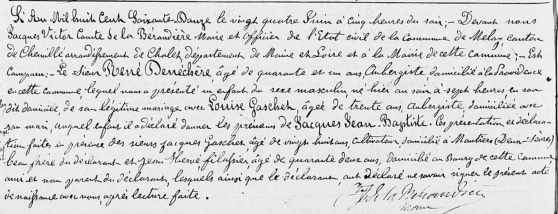 L'An Mil huit Cent Soixante-Douze le vingt quatre Juin à Cinq heures du soir; - Devant nous
Jacques Victor Comte de la Béraudière Maire et Officier de l'Etat civil de la Commune de Melay canton
de Chemillé arrondissement de Cholet, département de Maine et Loire et à la Mairie de cette commune; - Est
Comparu; - Le sieur René Derrechère âgé de quarante et un ans Aubergiste domicilié à la Providence
en cette commune, lequel nous a présenté un enfant du sexe masculin, né hier au soir à sept heures en son
dit domicile de son légitime mariage avec Louise Gaschet, âgée de trente ans, Aubergiste, domiciliée avec
son mari, auquel enfant il a déclaré donner les prénoms de Jacques Jean Baptiste. Ces présentation et déclara-
tion faites en présence des sieurs Jacques Gaschet, âgé de vingt huit ans, cultivateur, domicilié à (Deux-Sèvres)
beau frère du déclarant et Jean Hervé filassier, âgé de quarante deux ans, domicilié au Bourg de cette Commune
ami et non parent du déclarant, lesquels ainsi que le déclarant, ont déclaré ne savoir signer le présent acte
de naissance avec nous après lecture faite.
de la Béraudière